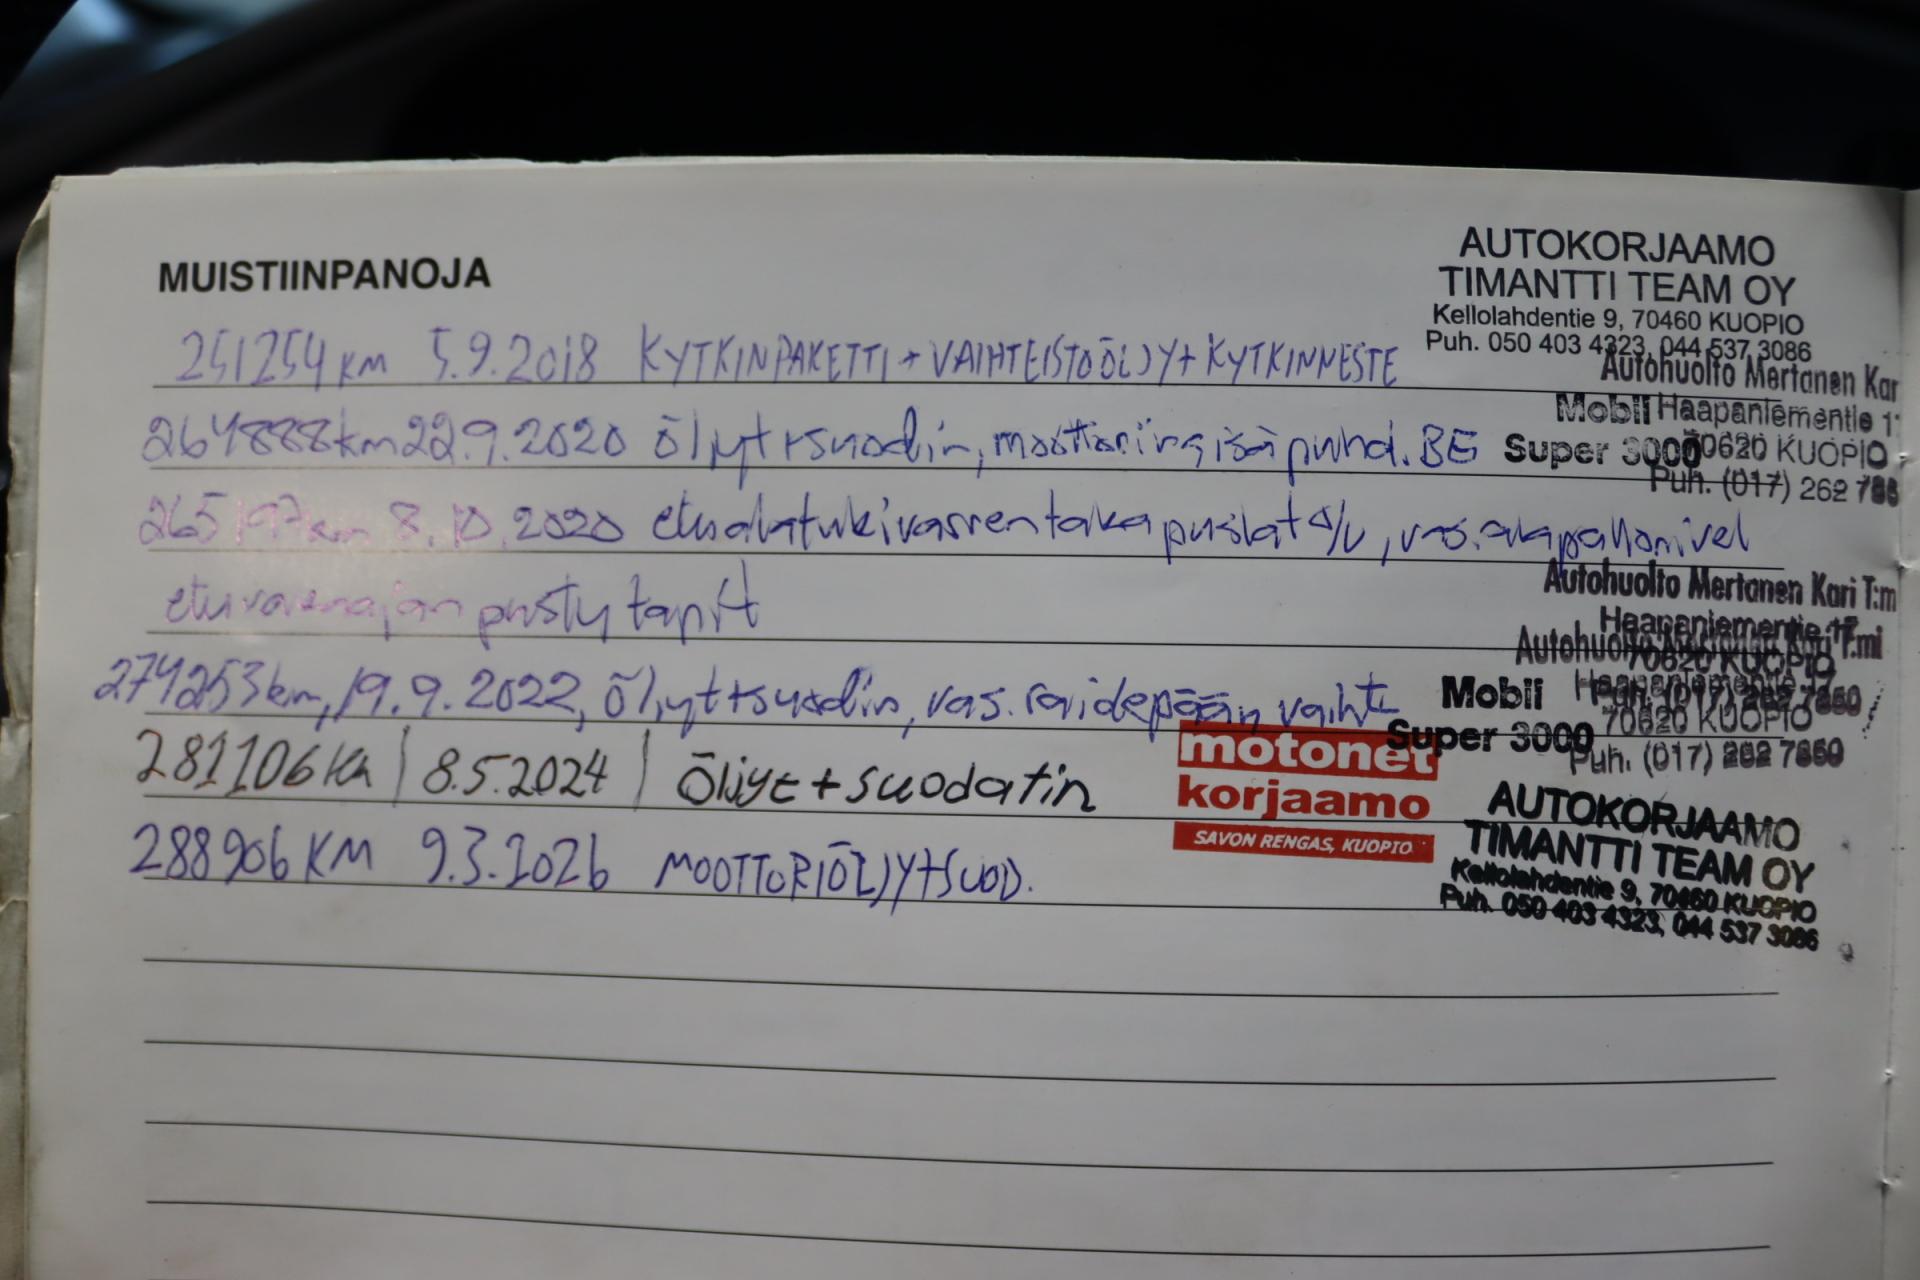 MUISTIINPANOJA
AUTOKORJAAMO
TIMANTTI TEAM OY
Kellolahdentie 9, 70460 KUOPIO
Puh. 050 403 4323, 044 537 3086
251254 KM 5.9.2018 KYTKINPAKETTI + VAIHTEISTOÖLJY + KYTKINNESTE
Autohuolto Mertanen Kar
Mobil Haapaniementie 1
264888km 22.9.2020 öljyt+suodin, moottorin sisäpuhd. BE
Super 3000
70620 KUOPIO
Puh. (017) 262 786
265197km 8.10.2020 etualatukivarren taka puslat o/v, vas. alapallonivel
etuvavanajan pysty tapit
Autohuolto Mertanen Kari T:m
Haapaniementie 17
Autohuolto Mertanen Kari T:mi
70620 KUOPIO
274253km, 19.9.2022, öljyt+suodin, vas. raidepään vaiht
Mobil
Super 3000
70620 KUOPIO
Puh. (017) 262 7860
281106 Km | 8.5.2024 | Öljyt + suodatin
motonet
korjaamo
SAVON RENGAS, KUOPIO
288906 KM 9.3.2026 MOOTTORIÖLJY+SUOD.
AUTOKORJAAMO
TIMANTTI TEAM OY
Kellolahdentie 9, 70460 KUOPIO
Puh. 050 403 4323, 044 537 3086